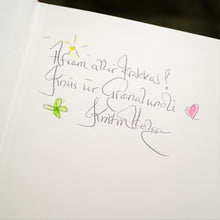 Áfram allir krakkar!
Knús úr Grænalundi
Kristín Helga